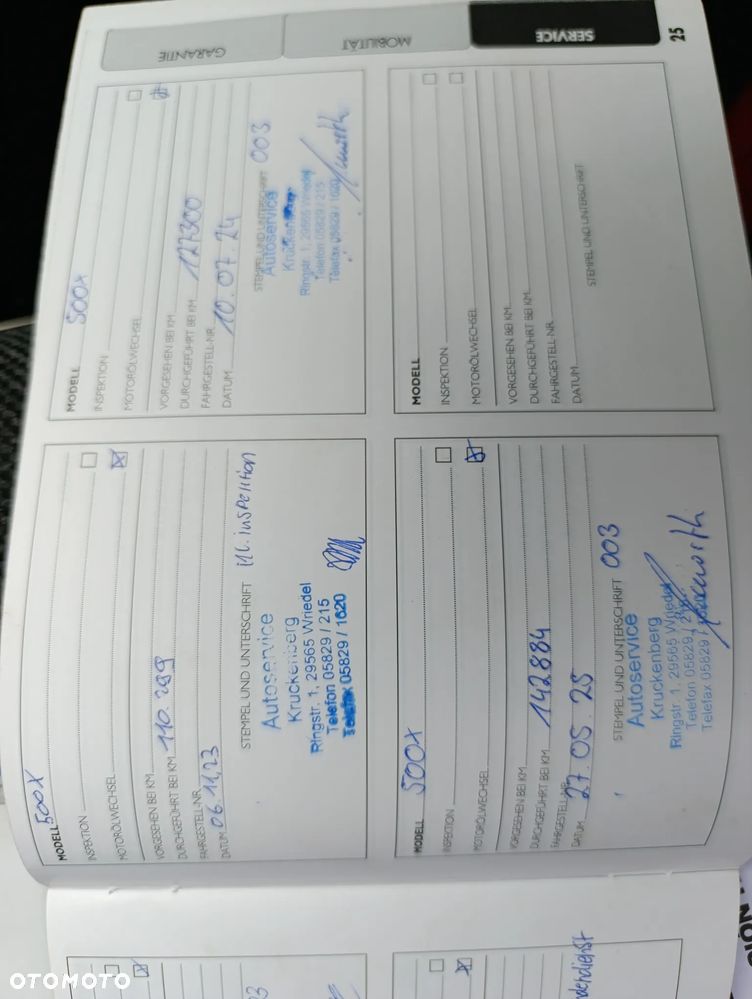 GARANTIE
MOBILITÄT
SERVICE
25
MODELL 500X
INSPEKTION
MOTORÖLWECHSEL
VORGESEHEN BEI KM
DURCHGEFÜHRT BEI KM 110.299
FAHRGESTELL-NR.
DATUM 06.11.23
STEMPEL UND UNTERSCHRIFT
Autoservice
Kruckenberg
Ringstr. 1, 29565 Wriedel
Telefon 05829 / 215
Telefax 05829 / 1620
MODELL 500X
INSPEKTION
MOTORÖLWECHSEL
VORGESEHEN BEI KM
DURCHGEFÜHRT BEI KM 127300
FAHRGESTELL-NR.
DATUM 10.07.24
STEMPEL UND UNTERSCHRIFT 003
Autoservice
Kruckenberg
Ringstr. 1, 29565 Wriedel
Telefon 05829 / 215
Telefax 05829 / 1620
MODELL 500X
INSPEKTION
MOTORÖLWECHSEL
VORGESEHEN BEI KM
DURCHGEFÜHRT BEI KM 142884
FAHRGESTELL-NR.
DATUM 27.05.25
STEMPEL UND UNTERSCHRIFT 003
Autoservice
Kruckenberg
Ringstr. 1, 29565 Wriedel
Telefon 05829 /
Telefax 05829 /
MODELL
INSPEKTION
MOTORÖLWECHSEL
VORGESEHEN BEI KM
DURCHGEFÜHRT BEI KM
FAHRGESTELL-NR.
DATUM
STEMPEL UND UNTERSCHRIFT
OTOMOTO